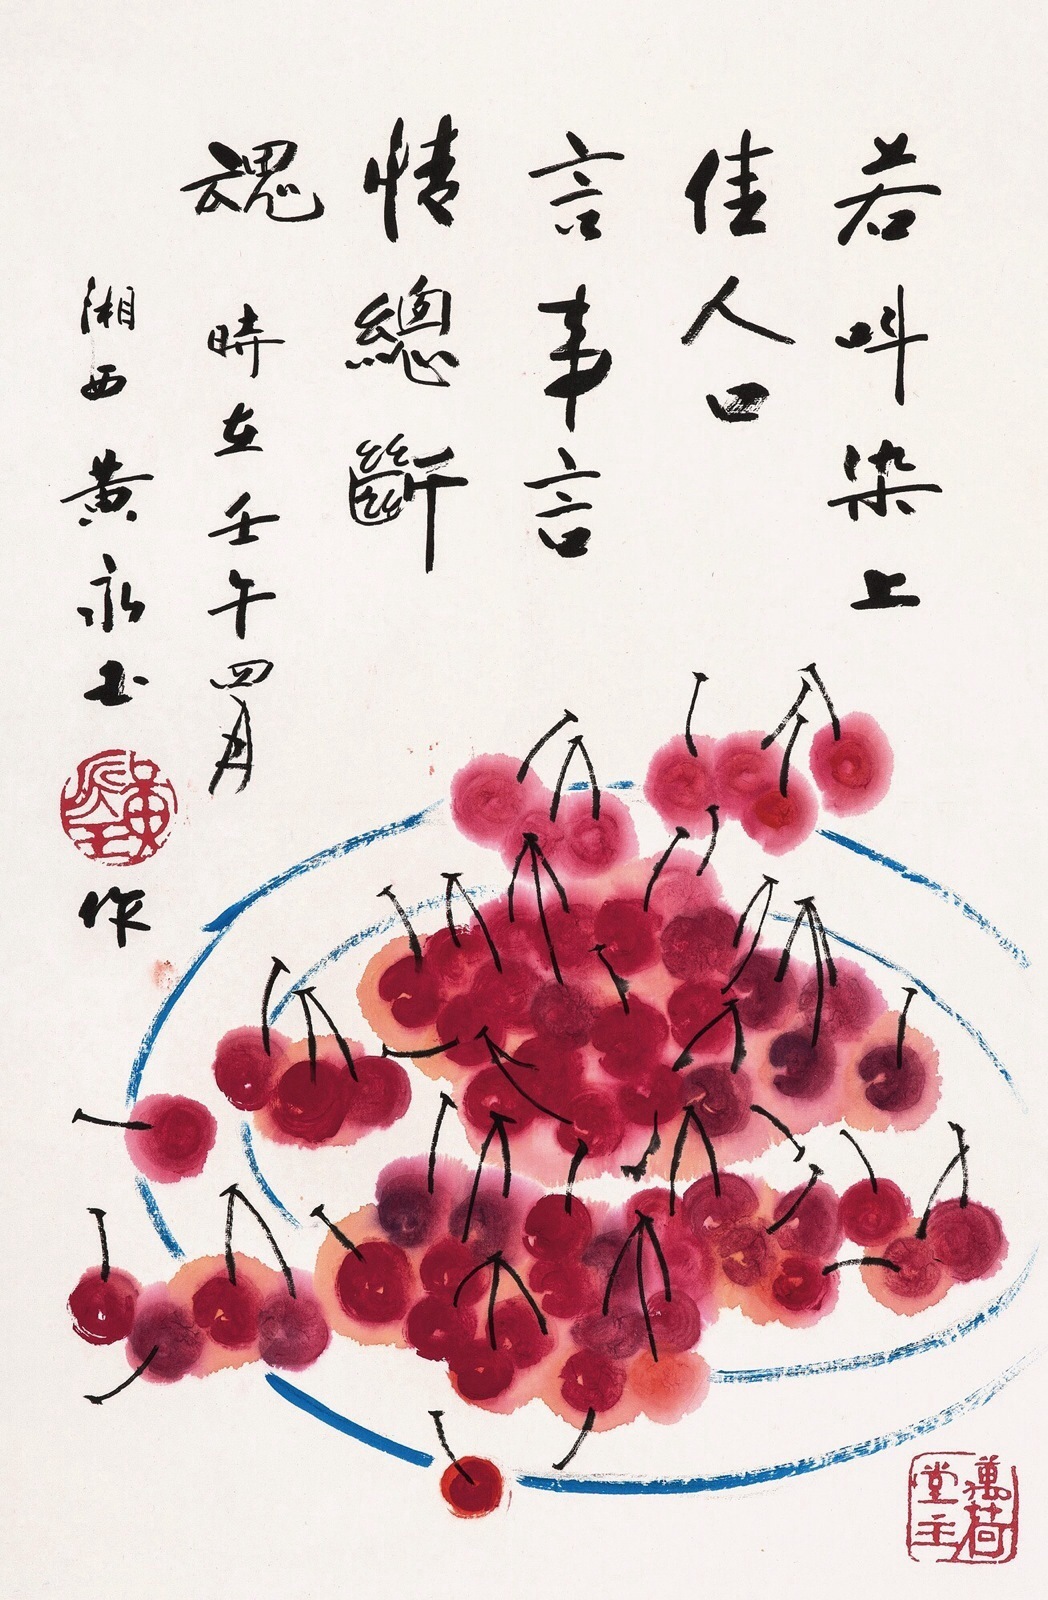 若叫染上
佳人口
言事言
情總斷
魂
時在壬午四月
湘西黄永玉
作
萬荷
堂主